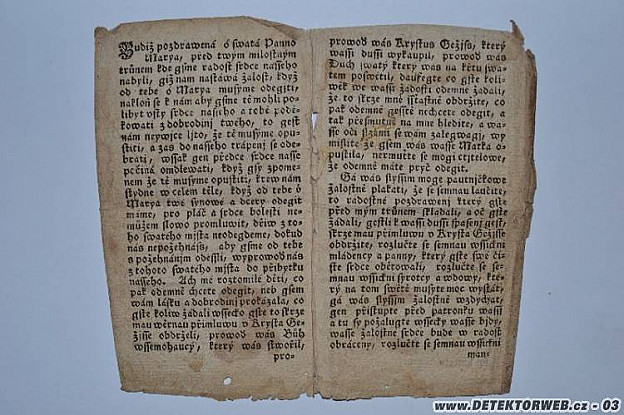 Budiž pozdrawená ó swatá Panno
Marya, před twým milostným
trůnem kde gsme radost srdce nasseho
nabyli, giž nam nastáwá žalost, když
od tebe ó Marya musyme odegiti,
nakloň se k nám aby gsme tě mohli po-
libit vsty srdce nasseho a tobě poďe-
kowati z dobrodinj tweho, to gestě
nám neywjce ljto, že tě musyme opu-
stiti, a zas do nasseho trápenj se ode-
brati, wssak gen předce srdce nasse
počjná omdlewati, když gsy zpome-
nem že tě musyme opustiti, krew nám
stydne w celem těle, když od tebe ó
Marya twé synowé a dcery odegit
máme, pro pláč a srdce bolesti ne-
můžem slowo promluwit, dřiw z to-
ho swatého mjsta neodegdeme, dokud
nás nepožehnáss, aby gsme od tebe
s požehnánjm odessli, wyprowoď nás
z tohoto swatého mjsta do přibytku
nasseho. Ach mé roztomilé děti, co
pak odemně chcete odegit, neb gsem
wám lásku a dobrodinj prokázala, co
gste koliw žádali wssecko gste to skrz
mau wěrnau přimluwu v Krysta Ge-
žjsse obdrželi, prowoď wás Bůh
wssemohaucý, který wás stwořil,
pro-
prowoď wás Krystus Gežjss, který
wassi dussi wykaupil, prowoď wás
Duch swatý který was na křtu swa-
tem poswětil, daufegte co gste koli-
wěk we wssj žádosti odemne žádali,
že to skrze mně sstiastně obdržjte, co
pak odemně gesstě nechcete odegit, a
tak přesmutně na mne hledjte, a wa-
sse oči slzamj se wam zalegwagj, wy
mislite že gsem wás wasse Matka o-
pustila, nermuťte se mogi ctjtelowe,
že odemně máte pryč odegit.
Gá was slyssim moge pautnjčkowé
žalostně plakati, že se semnau laučjte,
to radostné pozdrawenj který gste
před mým trůnem skladali, a oč gste
žádali, gestli k wassi dussi spasenj gest,
skrze mau přimluwu v Krysta Gežjsse
obdržjte, rozlučte se semnau wssickni
mládency a panny, který gste swé čis-
té srdce obětowali, rozlučte se se-
mnau wssickni syrotcy a wdowy, kte-
rý na tom swětě musyte moc wystát,
gá was slyssjm žalostně wzdychat,
gen přistupte před patronku wassi
a tu sy požalugte wssecky wasse bjdy,
wasse žalostné srdce bude w radost
obráceny, rozlučte se semnau wssickni
man-
www.DETEKTORWEB.cz - 03